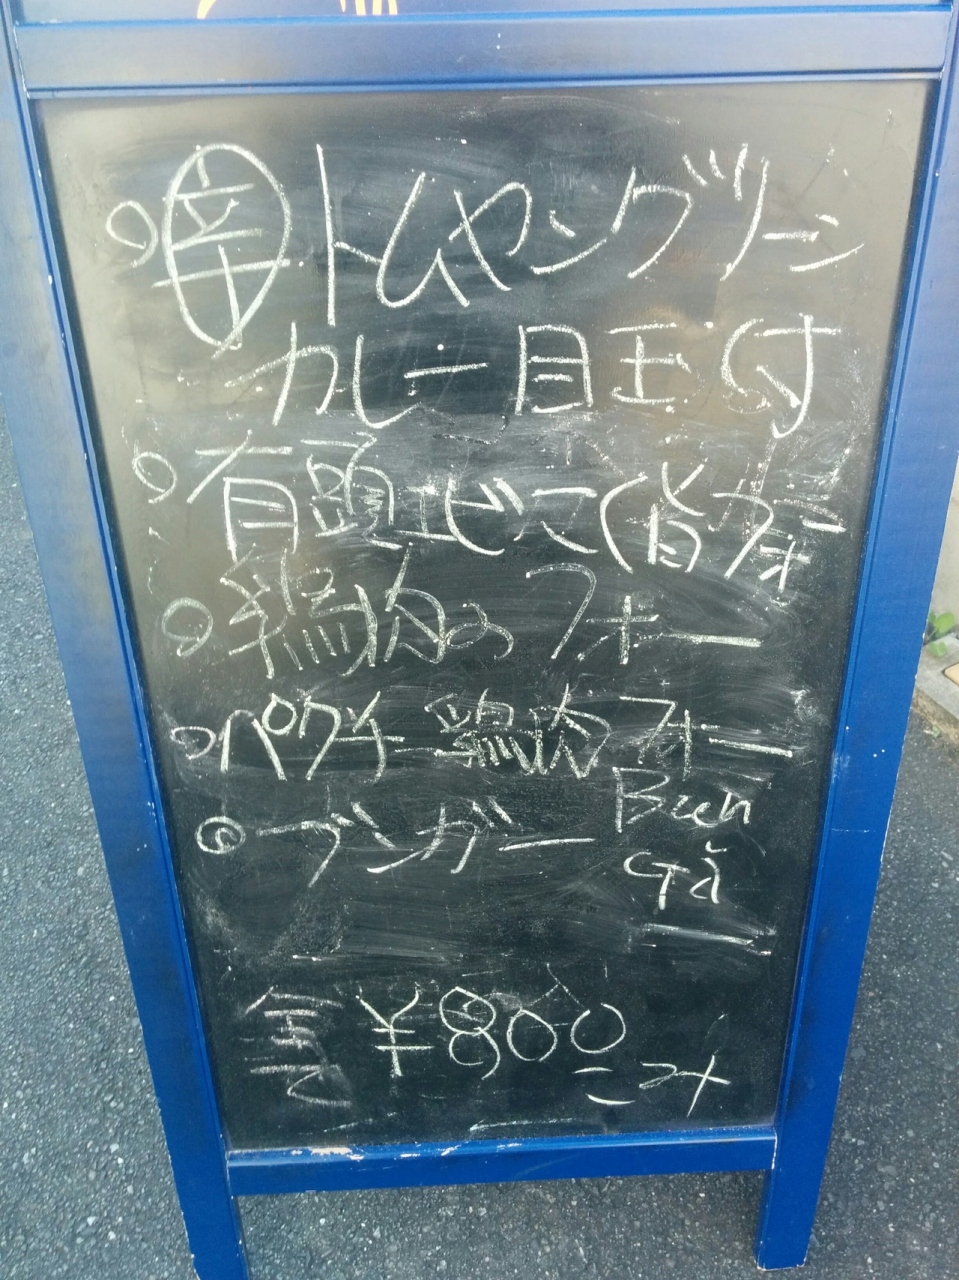 辛 トムヤングリーン
カレー 目玉付
有頭エビ
鶏肉のフォー
パクチー鶏肉フォー
ブンガー Bún
Gà
全て ¥800
コミ